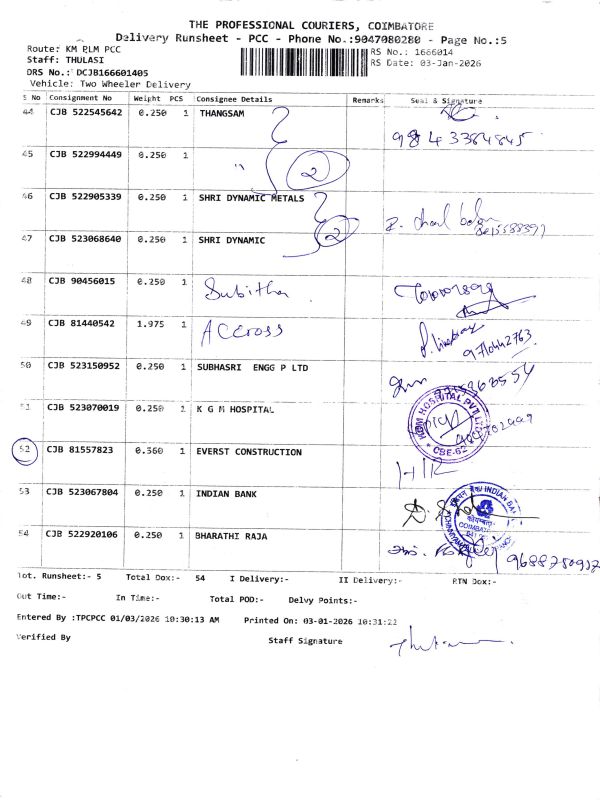 THE PROFESSIONAL COURIERS, COIMBATORE
Delivery Runsheet - PCC - Phone No.:9047080280 - Page No.:5
Route: KM RLM PCC
RS No.: 1666014
Staff: THULASI
RS Date: 03-Jan-2026
DRS No.: DCJB166601405
Vehicle: Two Wheeler Delivery
S No Consignment No Weight PCS Consignee Details Remarks Seal & Signature
44 CJB 522545642 0.250 1 THANGSAM
9843384845
45 CJB 522994449 0.250 1 " 2
46 CJB 522905339 0.250 1 SHRI DYNAMIC METALS
47 CJB 523068640 0.250 1 SHRI DYNAMIC 2
48 CJB 90456015 0.250 1 Subitha
49 CJB 81440542 1.975 1 ACCROSS
9710442763
50 CJB 523150952 0.250 1 SUBHASRI ENGG P LTD
51 CJB 523070019 0.250 1 K G M HOSPITAL
52 CJB 81557823 0.560 1 EVERST CONSTRUCTION
53 CJB 523067804 0.250 1 INDIAN BANK
54 CJB 522920106 0.250 1 BHARATHI RAJA
Tot. Runsheet:- 5 Total Dox:- 54 I Delivery:- II Delivery:- RTN Dox:-
Out Time:- In Time:- Total POD:- Delvy Points:-
Entered By :TPCPCC 01/03/2026 10:30:13 AM Printed On: 03-01-2026 10:31:22
Verified By Staff Signature